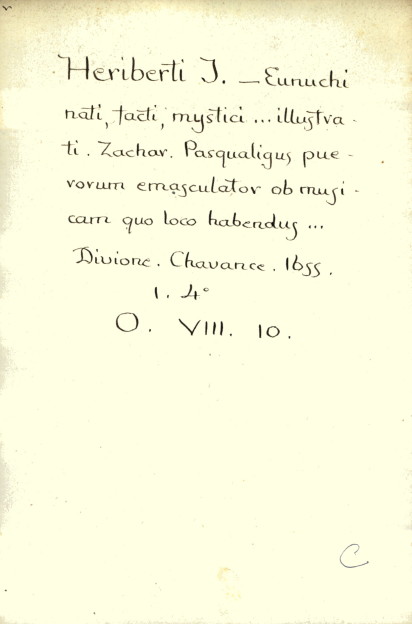 Heriberti J. — Eunuchi
nati, facti, mystici ... illustra-
ti. Zachar. Pasqualigus pue-
rorum emasculator ob musi-
cam quo loco habendus ...
Divione. Chavance. 1655.
1. 4°
O. VIII. 10.
C